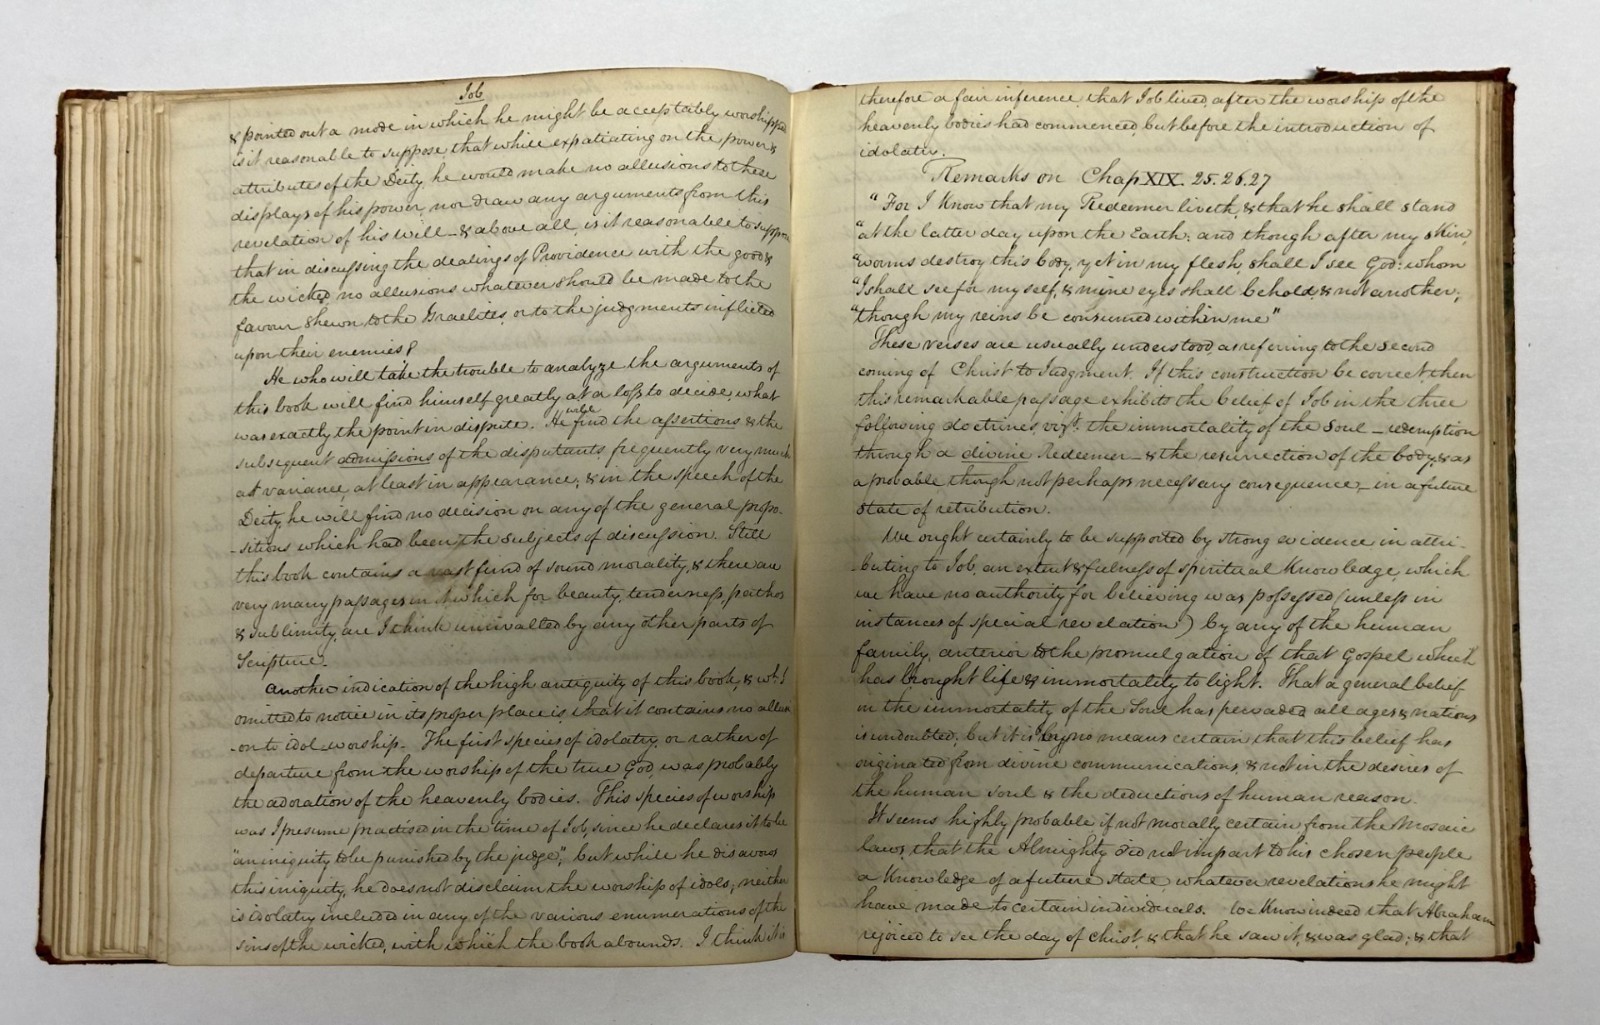 Job
& pointed out a mode in which he might be acceptably worshipped
is it reasonable to suppose that while expatiating on the power &
attributes of the Deity he would make no allusions to these
displays of his power, nor draw any arguments from this
revelation of his will – & above all, is it reasonable to suppose
that in discussing the dealings of Providence with the good &
the wicked, no allusions whatever should be made to the
favour shewn to the Israelites, or to the judgments inflicted
upon their enemies?
He who will take the trouble to analyze the arguments of
this book will find himself greatly at a loss to decide, what
was exactly the point in dispute. He will find the assertions & the
subsequent admissions of the disputants frequently very much
at variance, at least in appearance; & in the speech of the
Deity he will find no decision on any of the general propo-
-sitions which had been the subjects of discussion. Still
this book contains a vast fund of sound morality, & there are
very many passages in which for beauty, tenderness, pathos
& sublimity, are I think unrivalled by any other parts of
Scripture.
Another indication of the high antiquity of this book, & wh. I
omitted to notice in its proper place is, that it contains no allusi
-on to idol worship. The first species of idolatry, or rather of
departure from the worship of the true God, was probably
the adoration of the heavenly bodies. This species of worship
was I presume practised in the time of Job, since he declares it to be
"an iniquity to be punished by the judge"; but while he disavows
this iniquity, he does not disclaim the worship of idols; neither
is idolatry included in any of the various enumerations of the
sins of the wicked, with which the book abounds. I think it is
therefore a fair inference that Job lived after the worship of the
heavenly bodies had commenced but before the introduction of
idolatry.
Remarks on Chap XIX. 25. 26. 27
"For I know that my Redeemer liveth, & that he shall stand
"at the latter day upon the Earth; and though after my skin,
"worms destroy this body, yet in my flesh, shall I see God: whom
"I shall see for myself, & mine eyes shall behold, & not another;
"though my reins be consumed within me"
These verses are usually understood, as referring to the second
coming of Christ to Judgment. If this construction be correct, then
this remarkable passage exhibits the belief of Job in the three
following doctrines, vizt. the immortality of the Soul – redemption
through a divine Redeemer – & the resurrection of the body, & as
a probable though not perhaps necessary consequence – in a future
state of retribution.
We ought certainly to be supported by strong evidence in attri-
-buting to Job, an extent & fulness of spiritual knowledge, which
we have no authority for believing was possessed (unless in
instances of special revelation) by any of the human
family, anterior to the promulgation of that Gospel which
has brought life & immortality to light. That a general belief
in the immortality of the Soul has pervaded all ages & nations
is undoubted; but it is by no means certain that this belief has
originated from divine communications, & not in the desires of
the human soul & the deductions of human reason.
It seems highly probable if not morally certain from the Mosaic
laws, that the Almighty did not impart to his chosen people
a knowledge of a future state, whatever revelations he might
have made to certain individuals. We know indeed that Abraham
rejoiced to see the day of Christ, & that he saw it, & was glad; & that